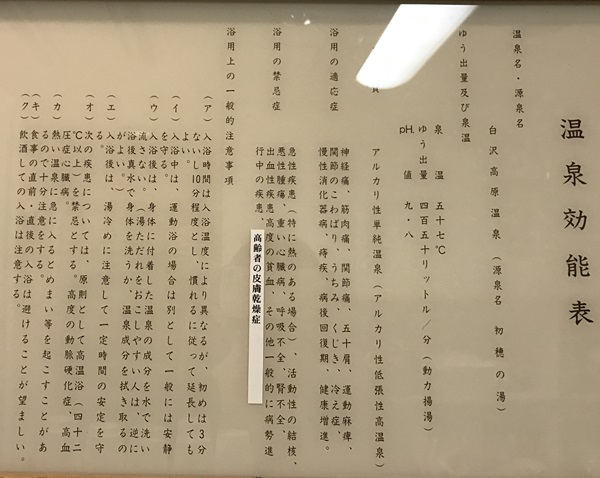 温泉効能表
温泉名・源泉名
白沢高原温泉（源泉名 初穂の湯）
ゆう出量及び泉温
泉温 五十七℃
ゆう出量 四百五十リットル／分（動力揚湯）
pH値 九・八
質
アルカリ性単純温泉（アルカリ性低張性高温泉）
浴用の適応症
神経痛、筋肉痛、関節痛、五十肩、運動麻痺、
関節のこわばり、うちみ、くじき、冷え症、
慢性消化器病、痔疾、病後回復期、健康増進。
浴用の禁忌症
急性疾患（特に熱のある場合）、活動性の結核、
悪性腫瘍、重い心臓病、呼吸不全、腎不全、
出血性疾患、高度の貧血、その他一般的に病勢進
行中の疾患、
高齢者の皮膚乾燥症
浴用上の一般的注意事項
（ア）入浴時間は入浴温度により異なるが、初めは３分
ないし10分程度とし、慣れるに従って延長しても
よい。
（イ）入浴中は、運動浴の場合は別として一般には安静
を守る。
（ウ）入浴後は、身体に付着した温泉の成分を水で洗い
流さない。（湯ただれをおこしやすい人は、逆に
浴後真水で身体を洗うか、温泉成分を拭き取るの
がよい。）
（エ）入浴後は、湯冷めに注意して一定時間の安定を守
る。
（オ）次の疾患については、原則として高温浴（四十二
℃以上）を禁忌とする。高度の動脈硬化症、高血
圧症、心臓病。
（カ）熱い温泉に急に入るとめまい等を起こすことがあ
るので十分注意をする。
（キ）食事の直前、直後の入浴は避けることが望ましい。
（ク）飲酒しての入浴は注意する。